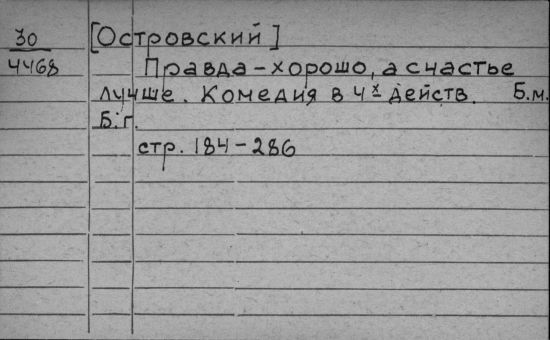 30 [Островский]
4468 Правда-хорошо, а счастье
лучше. Комедия в 4х действ. Б.м.
Б.г.
стр. 184-286